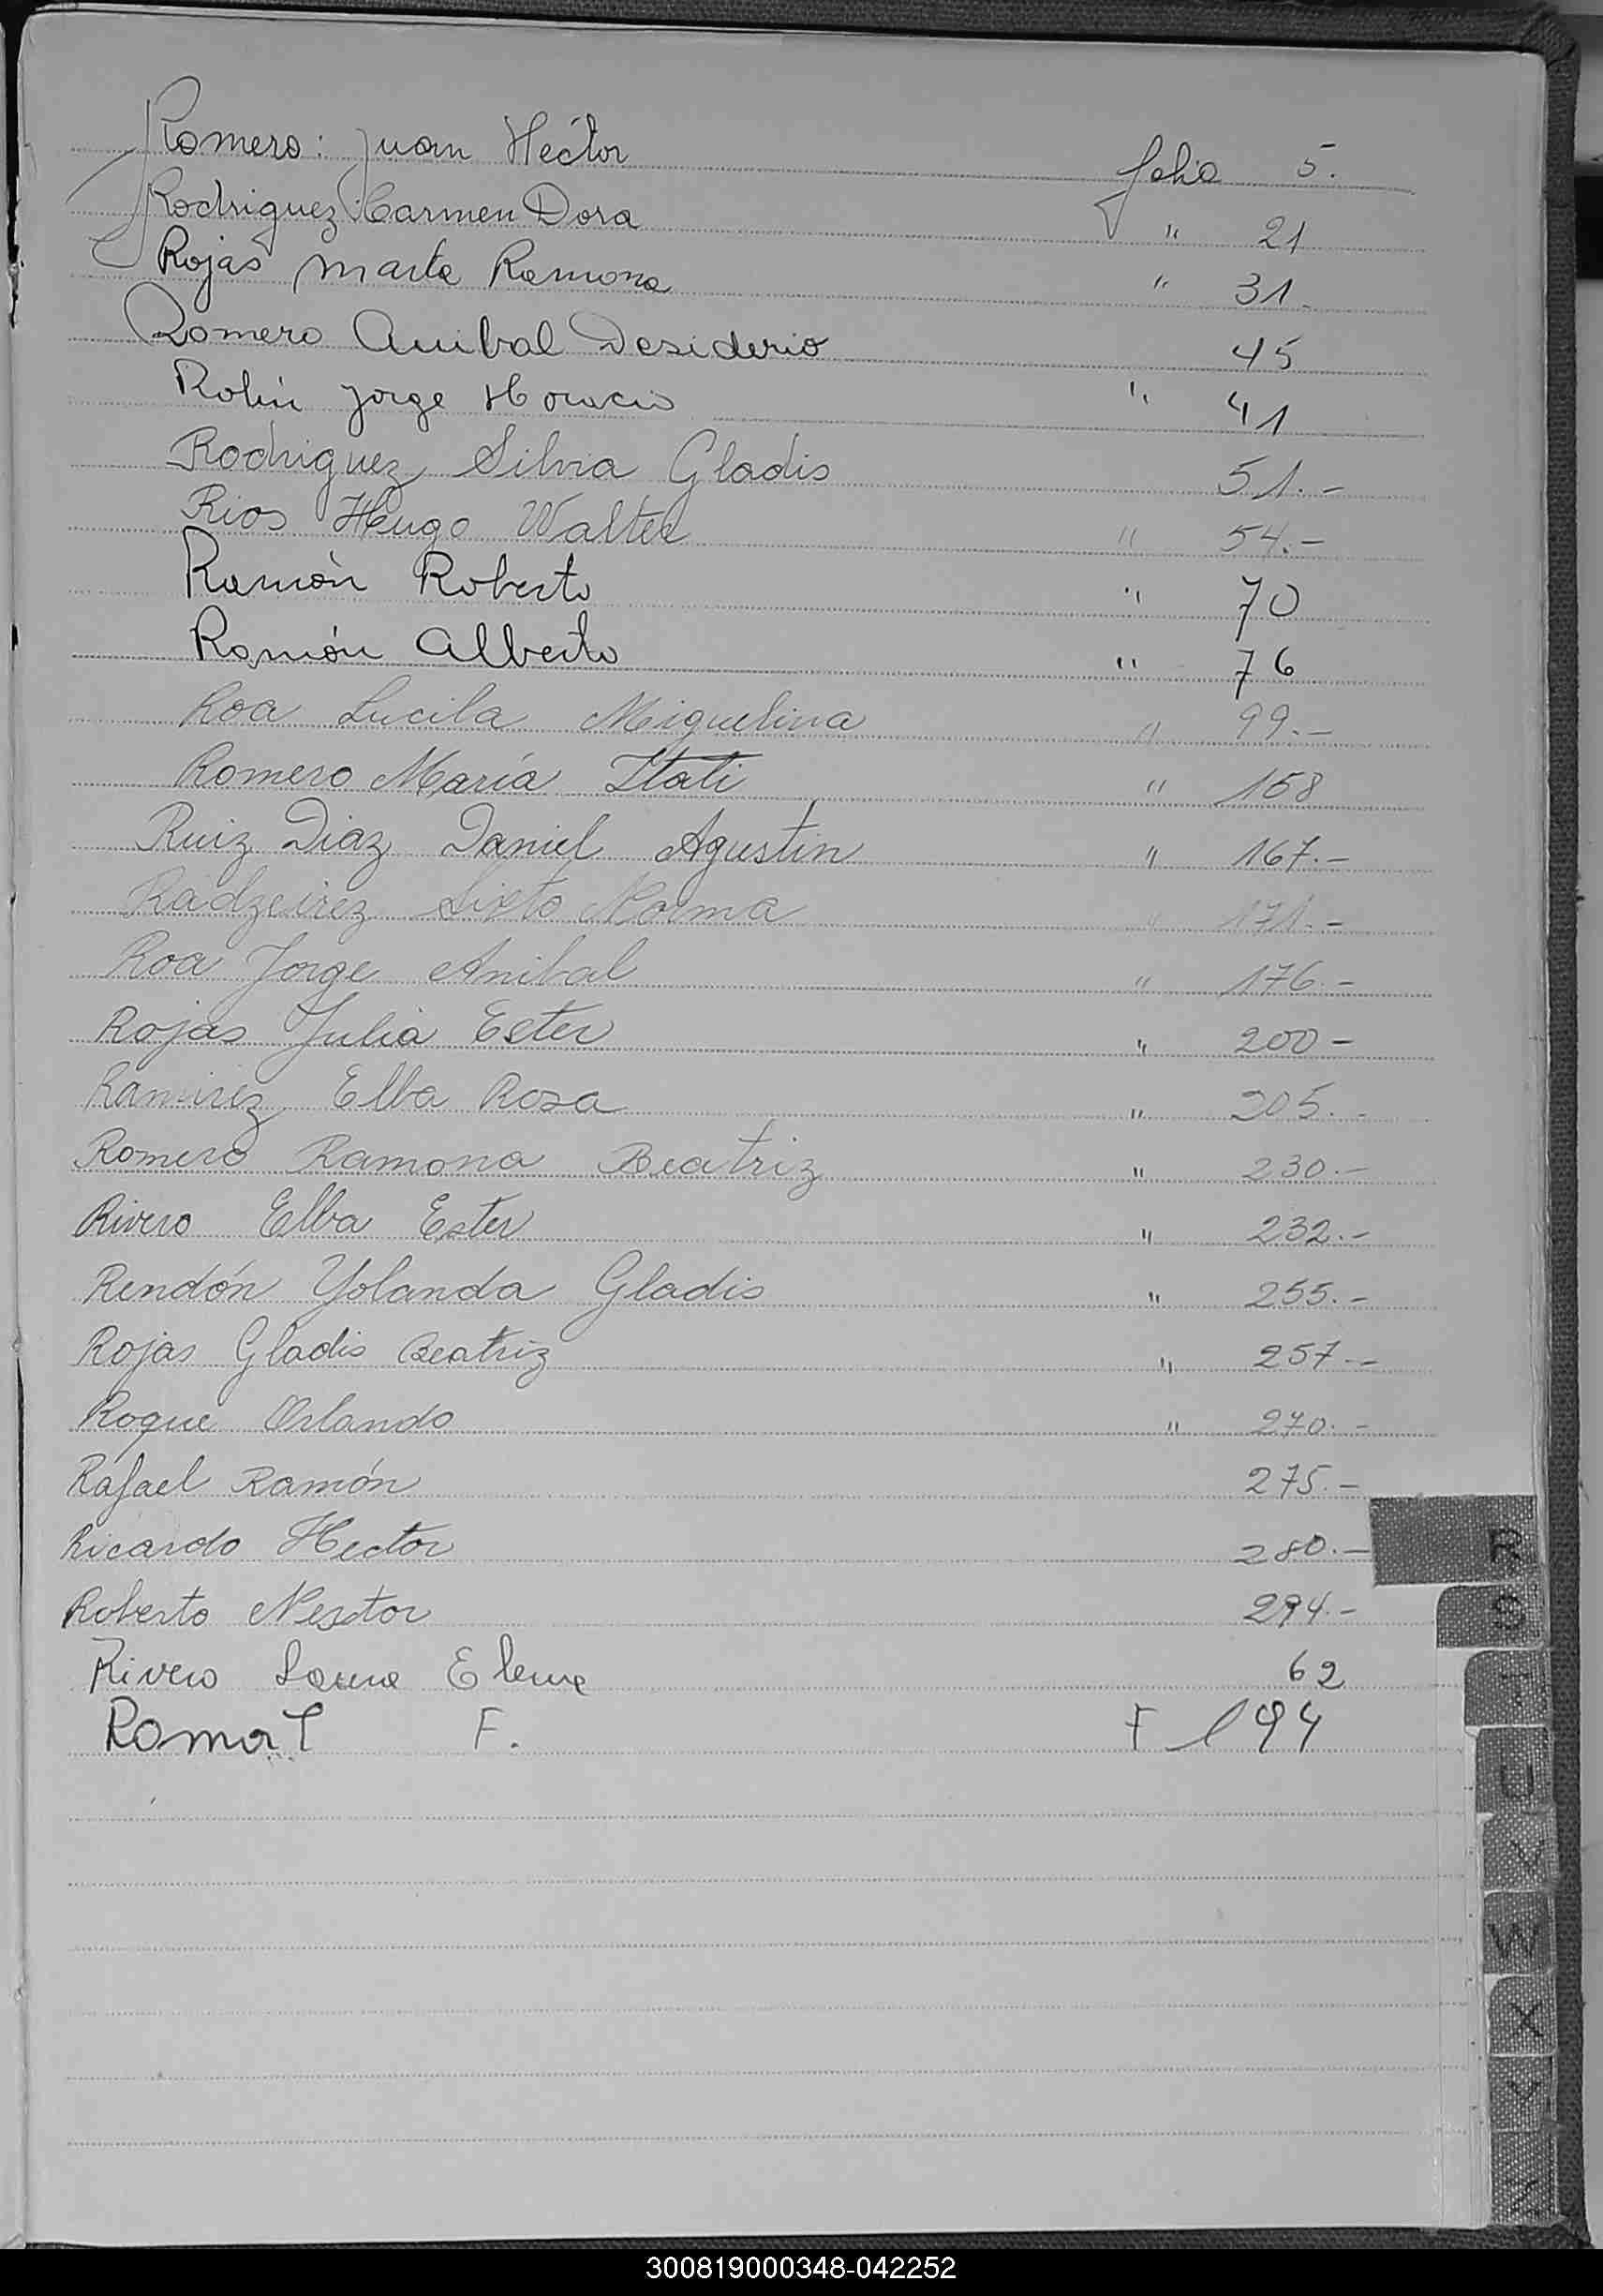 Romero: Juan Héctor folio 5.
Rodriguez: Carmen Dora " 21
Rojas Marta Ramona " 31.
Romero Anibal Desiderio 45
Robin Jorge Horacio " 41
Rodriguez Silvia Gladis 51.-
Rios Hugo Walter " 54.-
Ramón Roberto " 70
Ramón Alberto " 76
Roa Lucila Miguelina " 99.-
Romero María Itati " 158
Ruiz Diaz Daniel Agustin " 167.-
Sixto Norma " 171.-
Roa Jorge Anibal " 176.-
Rojas Julia Ester " 200-
Ramirez Elba Rosa " 205.-
Romero Ramona Beatriz " 230.-
Rivero Elba Ester " 232.-
Rendón Yolanda Gladis " 255.-
Rojas Gladis Beatriz " 257.-
Roque Orlando " 270.-
Rafael Ramón 275.-
Ricardo Hector 280.-
Roberto Nestor 294.-
Rivero Elena 62
Romat F. F 194
R
S
T
U
V
W
X
Y
Z
300819000348-042252